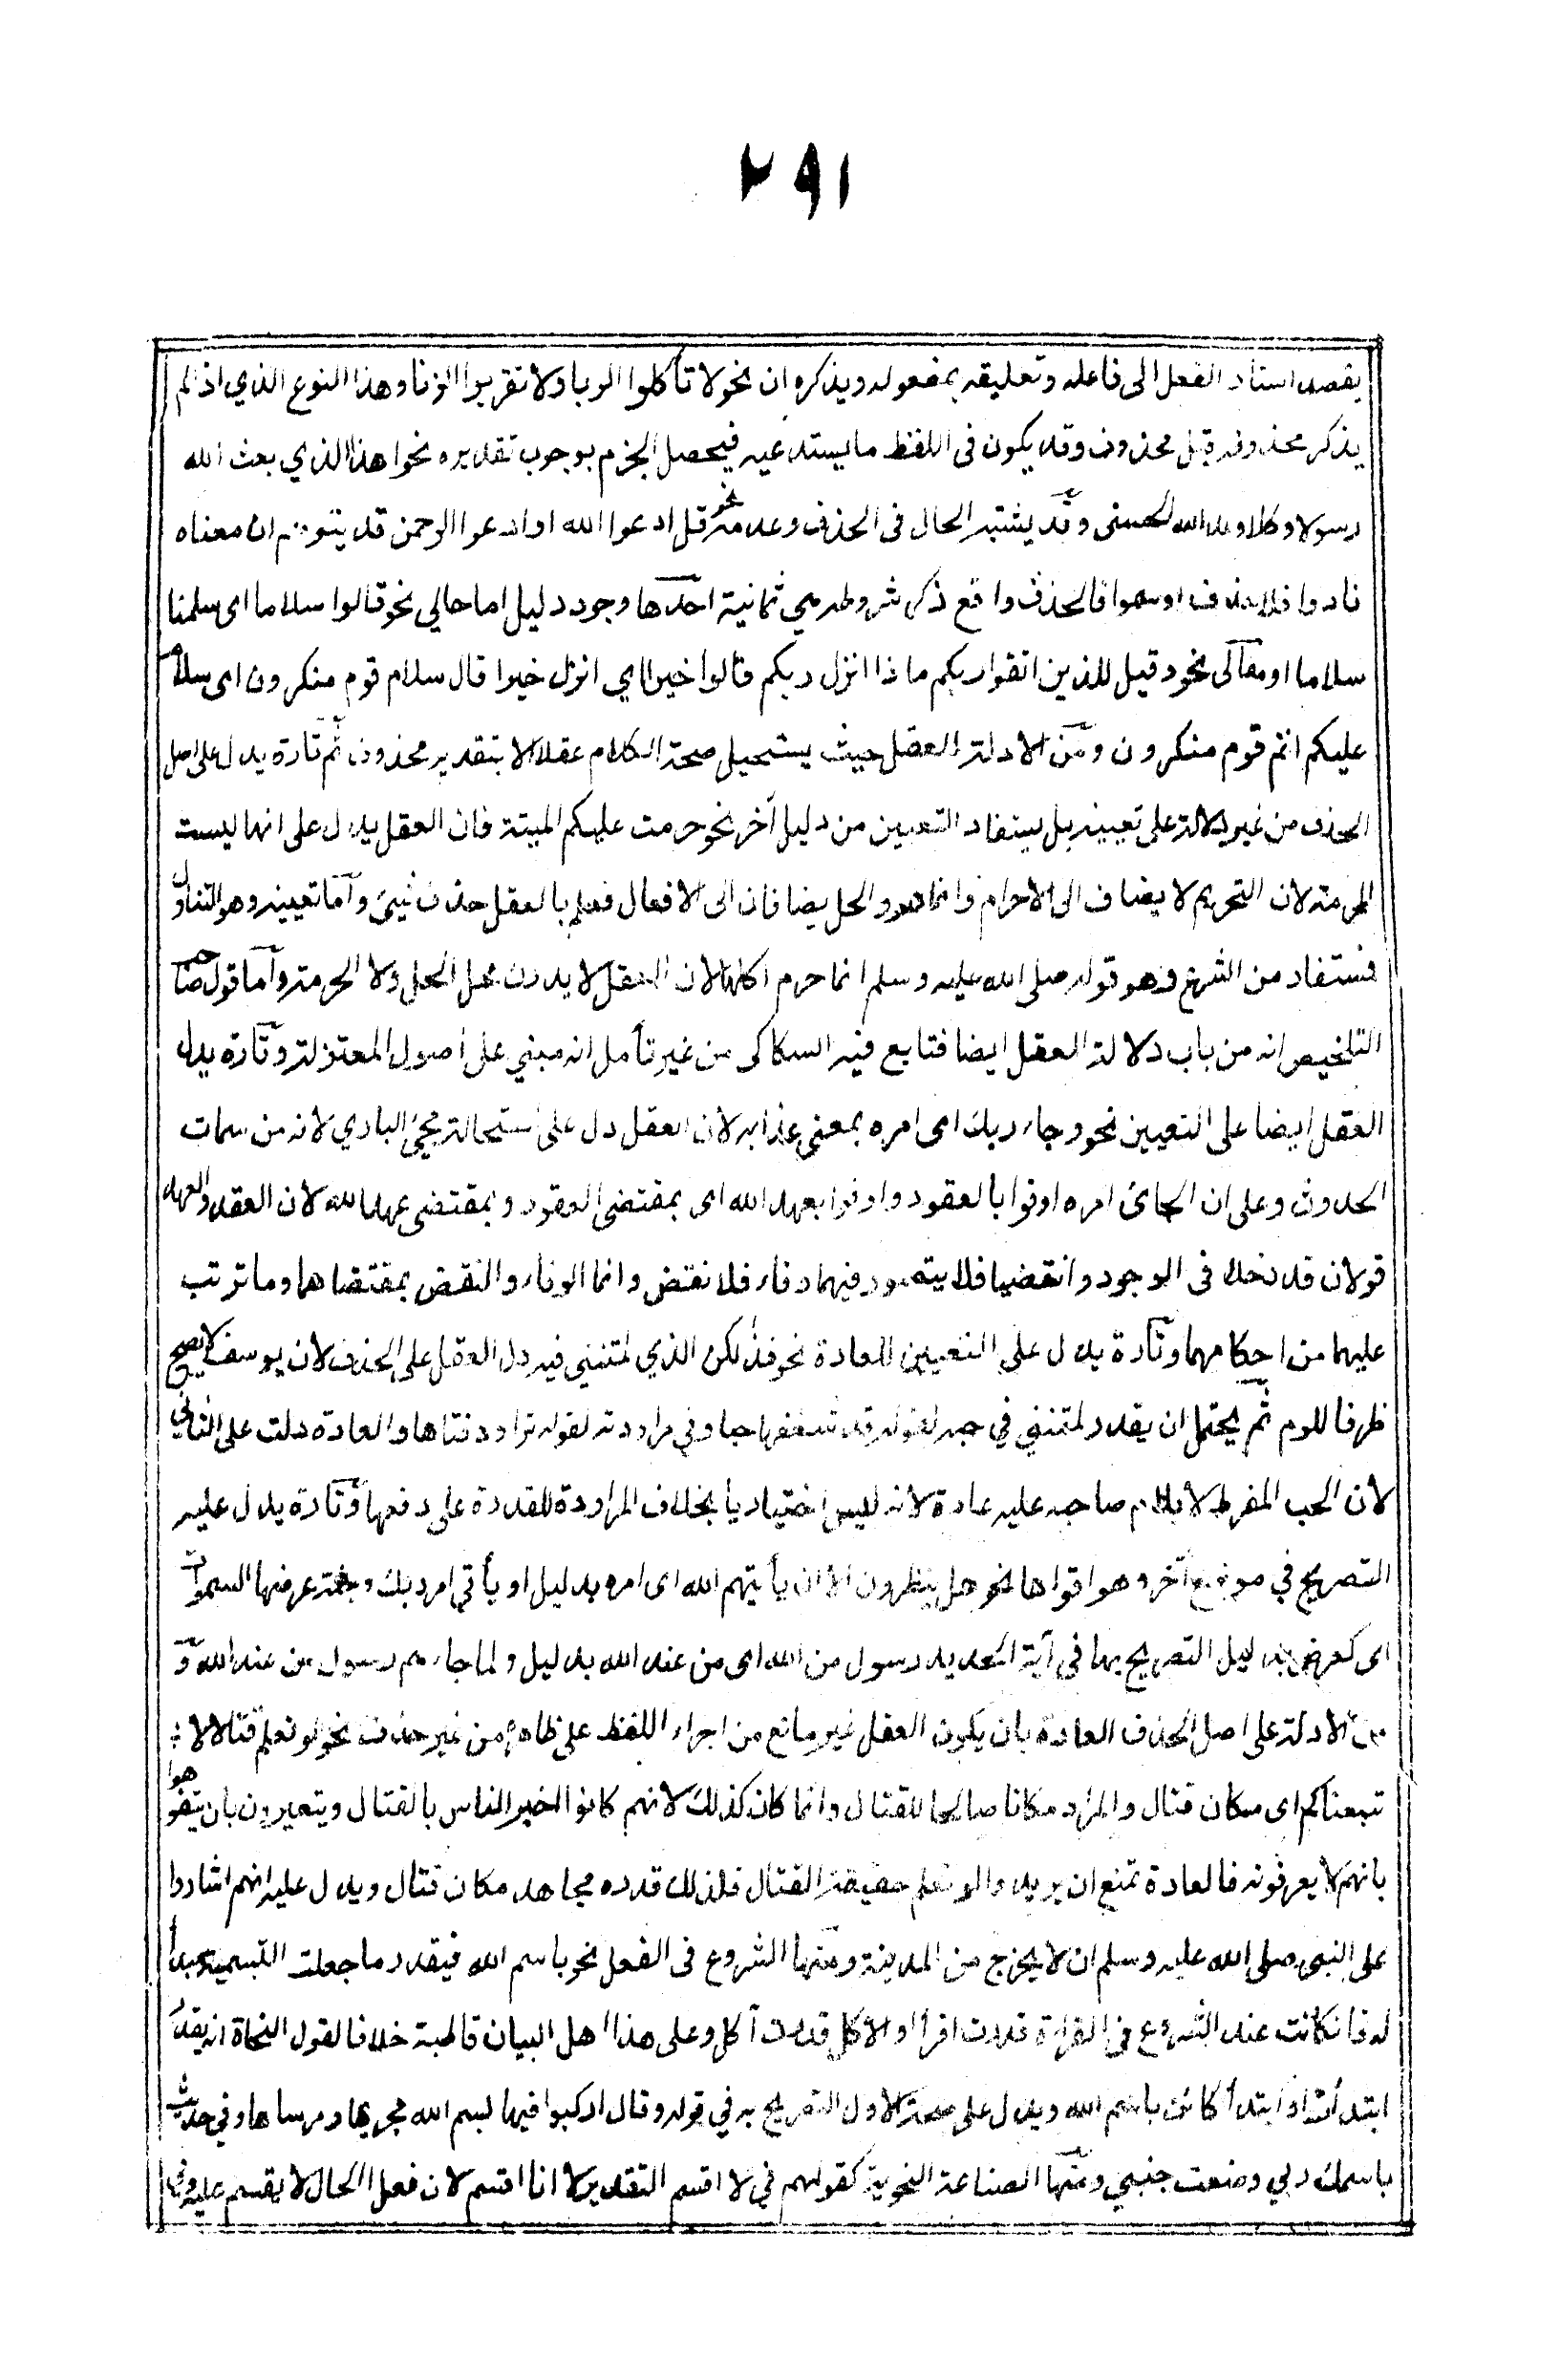 ٢٩١
يقصد اسناد الفعل الى فاعله وتعليقه بمفعوله ويذكره ان نحو لا تأكلوا الربا ولا تقربوا الزنا وهذا النوع الذي اذ لم
يذكر محذوفه قيل محذوف وقد يكون فى اللفظ ما يستدعيه فيحصل الجزم بوجوب تقديره نحو اهذا الذي بعث الله
رسولا وكلا وعد الله الحسنى وقد يشتبه الحال فى الحذف وعدمه نحو قل ادعوا الله او ادعوا الرحمن قد يتوهم ان معناه
نادوا فلا حذف او سموا فالحذف واقع ذكر شروطه هي ثمانية احدها وجود دليل اما حالي نحو قالوا سلاما اى سلمنا
سلاما او مقالى نحو وقيل للذين اتقوا ربكم ماذا انزل ربكم قالوا خيرا اي انزل خيرا قال سلام قوم منكرون اى سلام
عليكم انتم قوم منكرون ومن الادلة العقل حيث يستحيل صحة الكلام عقلا الا بتقدير محذوف ثم تارة يدل على اصل
الحذف من غير دلالة على تعيينه بل يستفاد التعيين من دليل آخر نحو حرمت عليكم الميتة فان العقل يدل على انها ليست
المحرمة لان التحريم لا يضاف الى الاجرام وانما هو والحل يضافان الى الافعال فعلم بالعقل حذف شيئ وأما تعيينه وهو التناول
فمستفاد من الشرع وهو قوله صلى الله عليه وسلم انما حرم اكلها لان العقل لا يدرك محل الحل ولا الحرمة وأما قول صاحب
التلخيص انه من باب دلالة العقل ايضا فتابع فيه السكاكى من غير تأمل انه مبني على أصول المعتزلة وتارة يدل
العقل ايضا على التعيين نحو وجاء ربك اى امره بمعنى عذابه لان العقل دل على استحالة مجيئ الباري لانه من سمات
الحدوث وعلى ان الجائئ امره اوفوا بالعقود واوفوا بعهد الله اى بمقتضى العقود وبمقتضى عهد الله لان العقد والعهد
قولان قد دخلا فى الوجود وانقضيا فلا يتصور فيهما وفاء ولا نقض وانما الوفاء والنقض بمقتضاهما وما ترتب
عليهما من احكامهما وتارة يدل على التعيين العادة نحو فذلكن الذي لمتنني فيه دل العقل على الحذف لان يوسف لا يصح
ظرفا للوم ثم يحتمل ان يقدر لمتنني في حبه لقوله قد شغفها حبا وفي مراودته لقوله تراود فتاها والعادة دلت على الثاني
لان الحب المفرط لا يلام صاحبه عليه عادة لانه ليس اختياريا بخلاف المراودة للقدرة على دفعها وتارة يدل عليه
التصريح في موضع آخر وهو اقواها نحو هل ينظرون الا ان يأتيهم الله اى امره بدليل او يأتي امر ربك وجنة عرضها السموات
اى كعرض بدليل التصريح بها فى آية الحديد رسول من الله اى من عند الله بدليل ولما جاءهم رسول من عند الله و
من الادلة على اصل الحذف العادة بان يكون العقل غير مانع من اجراء اللفظ على ظاهره من غير حذف نحو لو نعلم قتالا لا
تبعناكم اى مكان قتال والمراد مكانا صالحا للقتال وانما كان كذلك لانهم كانوا اخبر الناس بالقتال ويتعيرون بان يتفوهوا
بانهم لا يعرفونه فالعادة تمنع ان يريدوا لو نعلم حقيقة القتال فلذلك قدره مجاهد مكان قتال ويدل عليه انهم اشاروا
على النبي صلى الله عليه وسلم ان لا يخرج من المدينة ومنها الشروع فى الفعل نحو باسم الله فيقدر ما جعلت التسمية مبدأ
له فان كانت عند الشروع فى القراءة قدرت اقرأ او الاكل قدرت آكل وعلى هذا اهل البيان قاطبة خلافا لقول النحاة انه يقدر
ابتدأت او ابتدأ كائن باسم الله ويدل على صحة الاول التصريح به في قوله وقال اركبوا فيها بسم الله مجريها ومرساها وفي حديث
باسمك ربي وضعت جنبي ومنها الصناعة النحوية كقولهم في لا اقسم التقدير لا انا اقسم لان فعل الحال لا يقسم عليه وفي